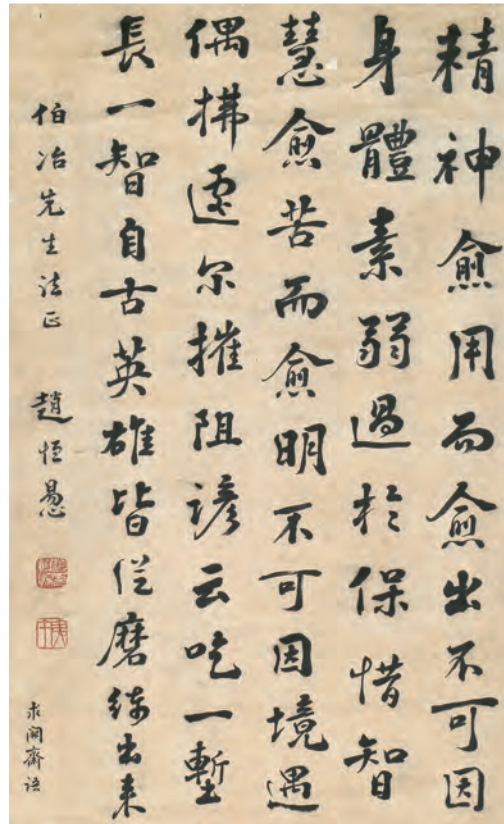 精神愈用而愈出不可因
身體素弱過於保惜智
慧愈苦而愈明不可因境遇
偶拂遽尔摧阻諺云吃一塹
長一智自古英雄皆從磨練出来
伯冶先生法正 趙恒惕
求闕齋語